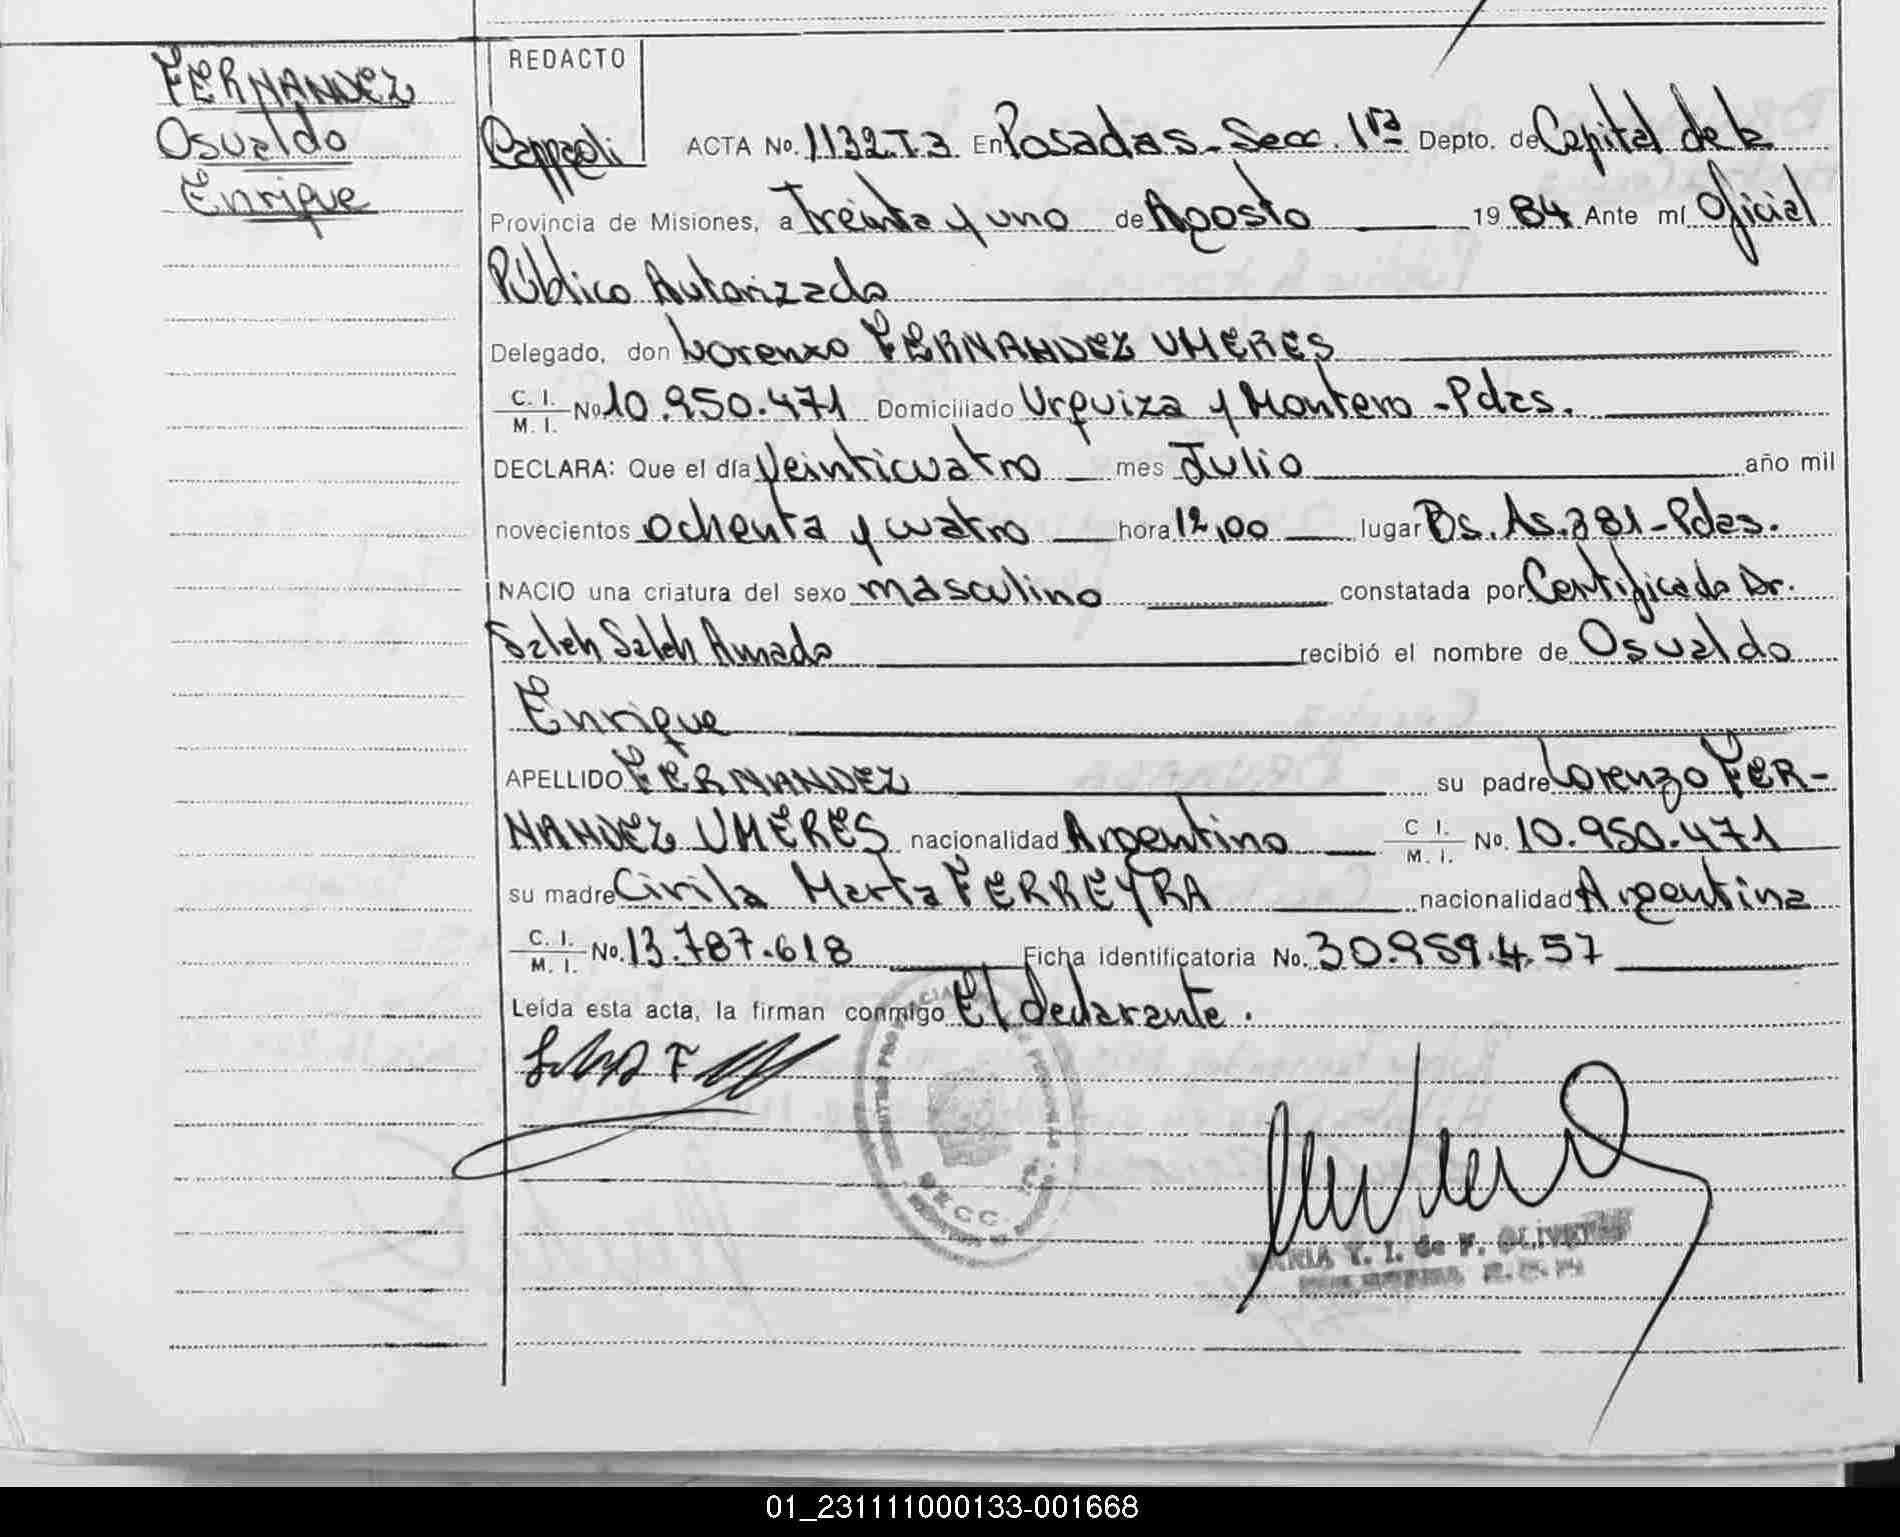 FERNANDEZ
Osvaldo
Enrique
REDACTO
ACTA No. 1132.T.3 En Posadas - Secc. 1ra Depto. de Capital de la
Provincia de Misiones, a Treinta y uno de Agosto 1984 Ante mí Oficial
Público Autorizado
Delegado, don Lorenzo FERNANDEZ UMERES
C. I. M. I. No. 10.950.471 Domiciliado Urquiza y Montero - Pdas.
DECLARA: Que el día Veinticuatro mes Julio año mil
novecientos ochenta y cuatro hora 12,00 lugar Bs. As. 381 - Pdas.
NACIO una criatura del sexo masculino constatada por Certificado Dr.
Saleh Saleh Amado recibió el nombre de Osvaldo
Enrique
APELLIDO FERNANDEZ su padre Lorenzo FER-
NANDEZ UMERES nacionalidad Argentino C I. M. I. No. 10.950.471
su madre Cirila Marta FERREYRA nacionalidad Argentina
C. I. M. I. No. 13.787.618 Ficha identificatoria No. 30.959.457
Leída esta acta, la firman conmigo El declarante.
MARIA Y. I. de F. OLIVETTI
01_231111000133-001668